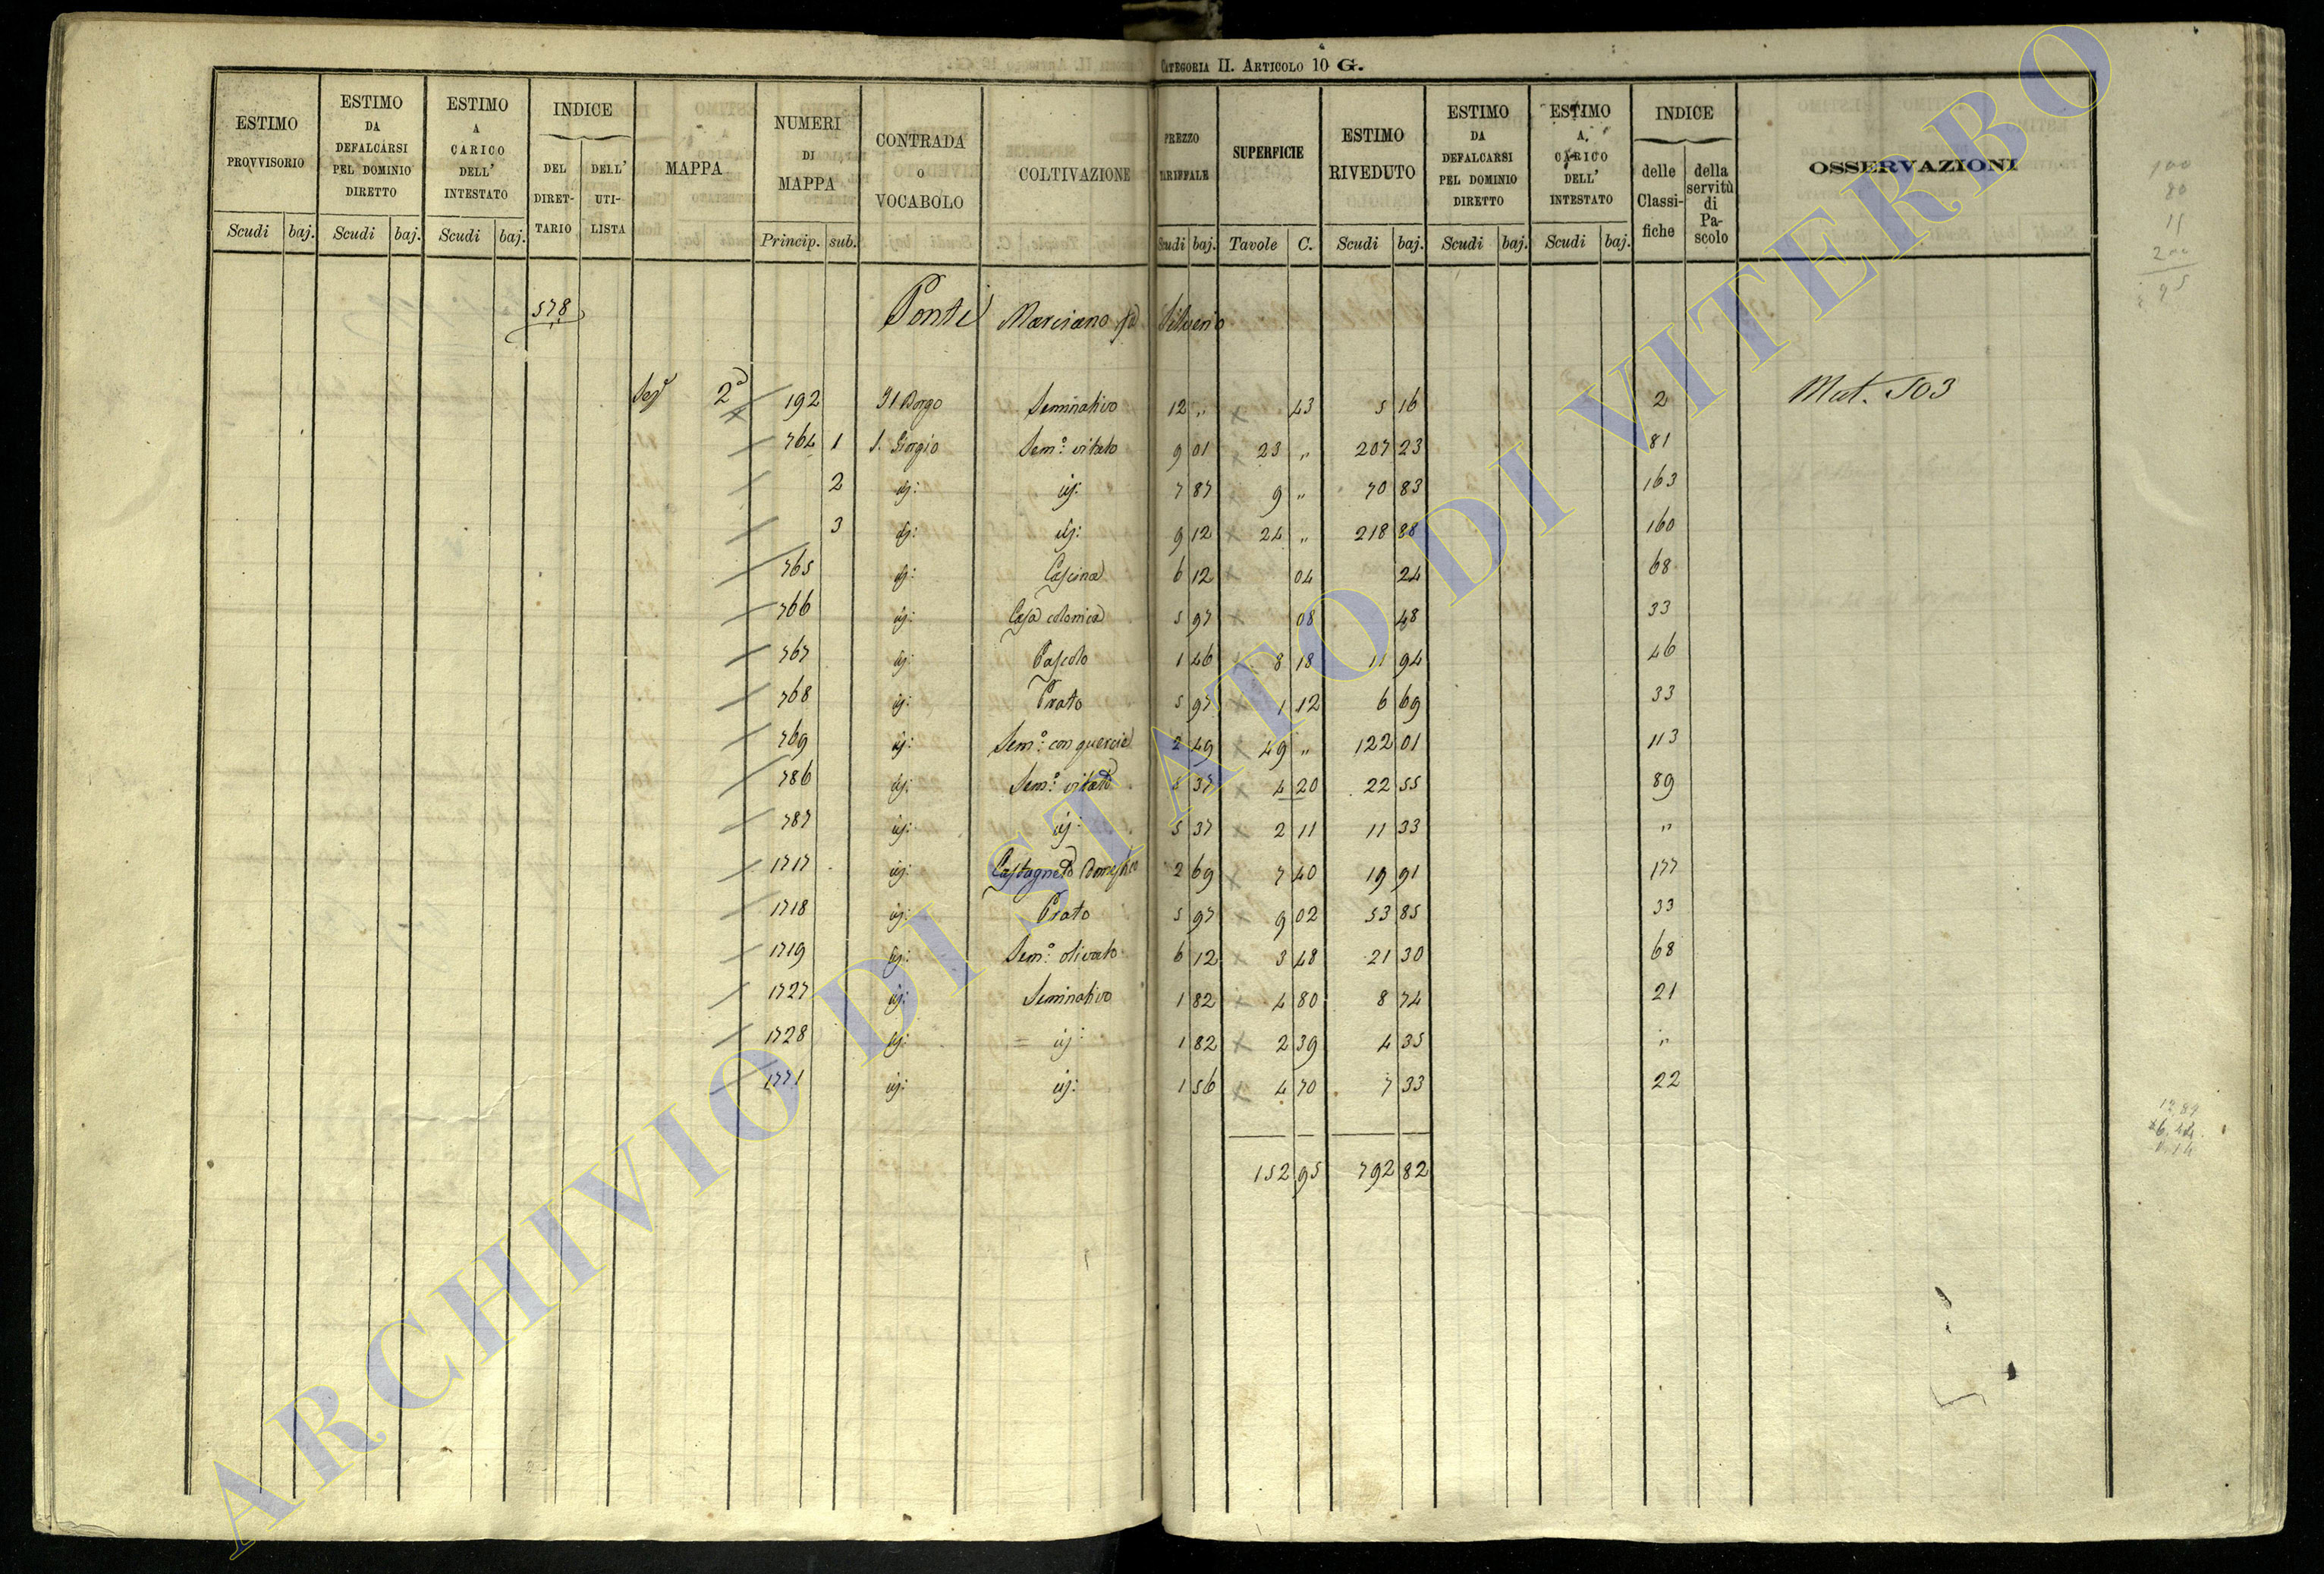 CATEGORIA II. ARTICOLO 10 G.
ESTIMO PROVVISORIO Scudi baj.
ESTIMO DA DEFALCARSI PEL DOMINIO DIRETTO Scudi baj.
ESTIMO A CARICO DELL' INTESTATO Scudi baj.
INDICE DEL DIRETTARIO DELL' UTILISTA
MAPPA
NUMERI DI MAPPA Princip. sub.
CONTRADA O VOCABOLO
COLTIVAZIONE
PREZZO TARIFFALE Scudi baj.
SUPERFICIE Tavole C.
ESTIMO RIVEDUTO Scudi baj.
ESTIMO DA DEFALCARSI PEL DOMINIO DIRETTO Scudi baj.
ESTIMO A CARICO DELL' INTESTATO Scudi baj.
INDICE delle Classifiche della servitù di Pascolo
OSSERVAZIONI
578 Ponti Marciano Silverio
2ª 192 Il Borgo Seminativo 12 " 43 5 16 2 Mut. 503
764 1 S. Giorgio Sem.º vitato 9 01 23 " 207 23 81
2 id: id: 7 87 9 " 70 83 163
3 id: id: 9 12 24 " 218 88 160
765 id: Cascina 6 12 04 24 68
766 id: Casa colonica 5 97 08 48 33
767 id: Pascolo 1 46 8 18 11 94 46
768 id: Prato 5 97 1 12 6 69 33
769 id: Sem.º con querce 2 49 49 " 122 01 113
786 id: Sem.º vitato 5 37 4 20 22 55 89
787 id: id: 5 37 2 11 11 33 "
1717 id: Castagneto 2 69 7 40 19 91 177
1718 id: Prato 5 97 9 02 53 85 33
1719 id: Sem.º olivato 6 12 3 48 21 30 68
1727 id: Seminativo 1 82 4 80 8 74 21
1728 id: = id: 1 82 2 39 4 35 "
1771 id: id: 1 56 4 70 7 33 22
152 95 792 82
100
80
ARCHIVIO DI STATO DI VITERBO